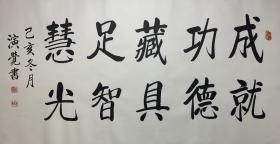 成就
功德
藏具
足智
慧光
己亥冬月
演覺書